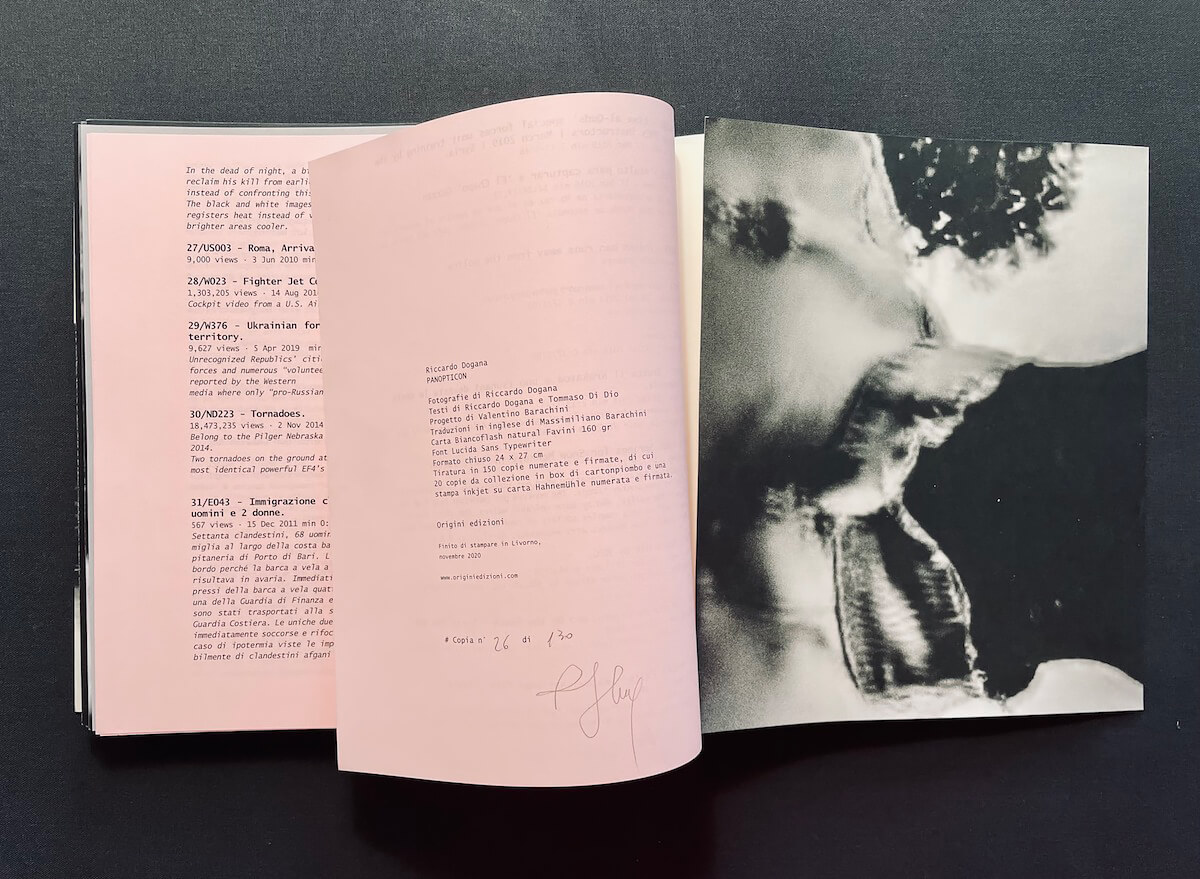 In the dead of night, a
reclaim his kill from
instead of confronting
The black and white images
registers heat instead of
brighter areas cooler.
27/US003 - Roma,
9,000 views - 3 Jun 2010
28/W023 - Fighter Jet
1,303,205 views - 14 Aug
Cockpit video from a U.S.
29/W376 - Ukrainian
territory.
9,627 views - 5 Apr 2019
Unrecognized Republics'
forces and numerous
reported by the Western
media where only
30/ND223 - Tornadoes.
18,473,235 views - 2 Nov 2014
Belong to the Pilger Nebraska
2014.
Two tornadoes on the ground at
most identical powerful EF4's
31/E043 - Immigrazione
uomini e 2 donne.
567 views - 15 Dec 2011 min
Settanta clandestini, 68
miglia al largo della costa
pitaneria di Porto di Bari.
bordo perché la barca a vela a
risultava in avaria.
pressi della barca a vela
una della Guardia di Finanza e
sono stati trasportati alla
Guardia Costiera. Le uniche due
immediatamente soccorse e
caso di ipotermia viste le
bilmente di clandestini afgani
Riccardo Dogana
PANOPTICON
Fotografie di Riccardo Dogana
Testi di Riccardo Dogana e Tommaso Di Dio
Progetto di Valentino Barachini
Traduzioni in inglese di Massimiliano Barachini
Carta Biancoflash natural Favini 160 gr
Font Lucida Sans Typewriter
Formato chiuso 24 x 27 cm
Tiratura in 150 copie numerate e firmate, di cui
20 copie da collezione in box di cartonpiombo e una
stampa inkjet su carta HahnemÜhle numerata e firmata.
Origini edizioni
Finito di stampare in Livorno,
novembre 2020
www.originiedizioni.com
# Copia n° 26 di 130